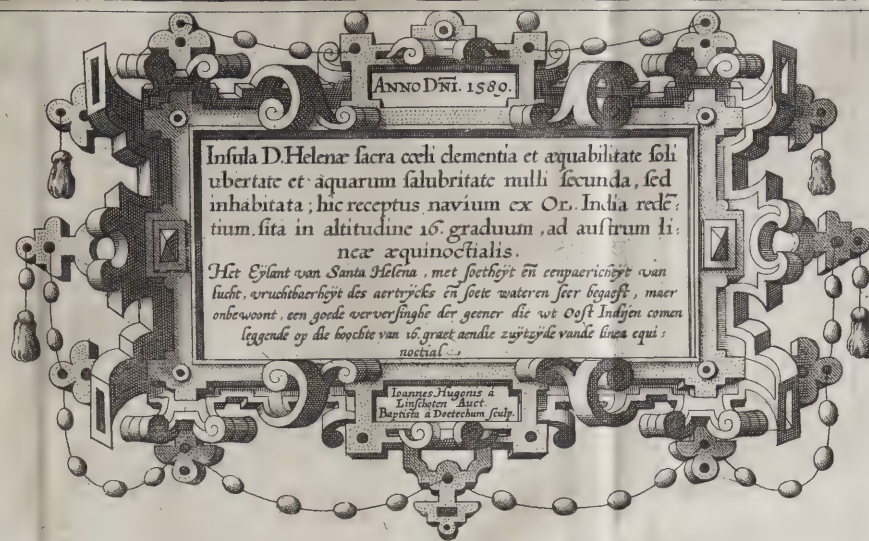 ANNO DN̄I. 1589.
Insula D. Helenæ sacra cœli clementia et æquabilitate soli
ubertate et aquarum salubritate nulli secunda, sed
inhabitata; hic receptus navium ex Or. India redē:
tium. sita in altitudine 16. graduum, ad austrum li:
neæ æquinoctialis.
Het Eÿlant van Santa Helena, met soetheÿt en̄ eenpaericheÿt van
lucht, vruchtbaerheÿt des aertrÿcks en̄ soete wateren seer begaeft, maer
onbewoont, een goede verversinghe der geener die wt Oost Indÿen comen
leggende op die hoochte van 16. graet aendie zuÿtzÿde vande linea equi:
noctial
Ioannes Hugonis à
Linschoten Auct.
Baptista à Doetechum sculp.